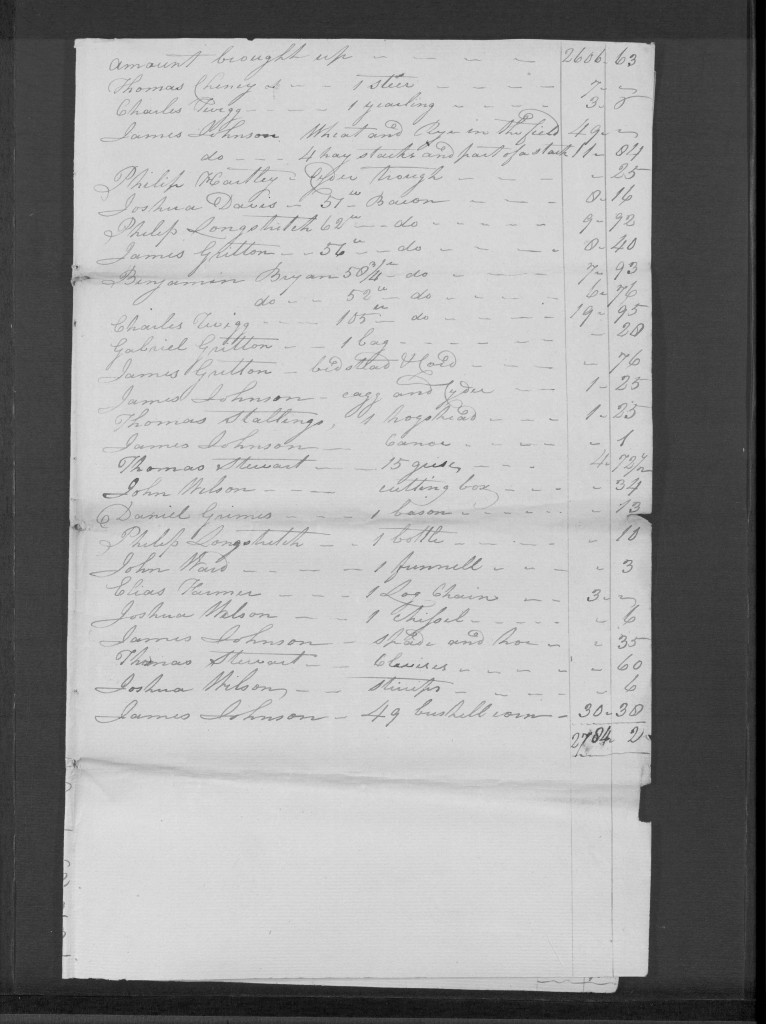 amount brought up - - - - 2606. 63
Thomas Cheney - - 1 steer - - - - 7- "
Charles Twigg - - - 1 yearling - - - - 3-
James Johnson Wheat and Rye in the field 49- "
do - - - 4 hay stacks and part of a stack 11- 84
Philip Hartley - Cyder trough - - - - " 25
Joshua Davis - 51 lb Bacon - - - - 8- 16
Philip Longstretch 62 lb - do - - - - 9- 92
James Gritton - - 56 lb - do - - - - 8- 40
Benjamin Bryan 58 3/4 lb do - - - - 7- 93
do - - 52 lb - do - - - - 6- 76
Charles Twigg - - - 105 lb - do - - - - 19- 95
Gabriel Gritton - - 1 bag - - - - - 28
James Gritton - bedstead & Cord - - - " 76
James Johnson - cagg and Cyder - - 1- 25
Thomas Stallings, 1 hogshead - - - 1- 25
James Johnson - - Canoe - - - - " 1
Thomas Stewart - - 15 geese - - - 4- 72 1/2
John Wilson - - - cutting box - - - " 34
Daniel Grimes - - - 1 bason - - - - " 13
Philip Longstretch - - 1 bottle - - - - " 10
John Ward - - - - 1 funnell - - - " 3
Elias - - - 1 Log Chain - - 3- "
Joshua Wilson - - 1 - - - - " 6
James Johnson - spade and hoe - " 35
Thomas Stewart - - Clevises - - - - " 60
Joshua Wilson - - stirrups - - - - " 6
James Johnson - 49 bushell corn - 30- 38
2784 2